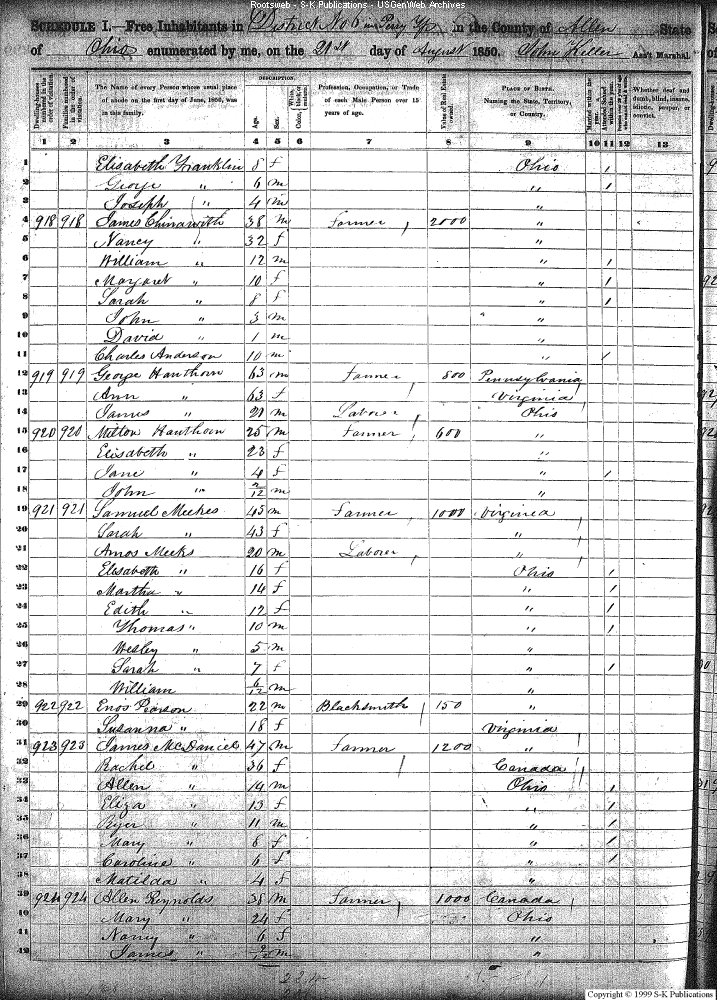 Rootsweb - S-K Publications - USGenWeb Archives
SCHEDULE I.—Free Inhabitants in District No 6 in Perry Tp in the County of Allen State
of Ohio enumerated by me, on the 21st day of August 1850. John Keller Ass't Marshal.
Dwelling-houses numbered in the order of visitation. Families numbered in the order of visitation. The Name of every Person whose usual place of abode on the first day of June, 1850, was in this family. DESCRIPTION. Age. Sex. Color, White, black, or mulatto. Profession, Occupation, or Trade of each Male Person over 15 years of age. Value of Real Estate owned. PLACE OF BIRTH. Naming the State, Territory, or Country. Married within the year. Attended School within the year. Whether deaf and dumb, blind, insane, idiotic, pauper, or convict.
1 2 3 4 5 6 7 8 9 10 11 12 13
1 Elisabeth Franklin 8 f Ohio /
2 George " 6 m " /
3 Joseph " 4 m "
4 918 918 James Chinawith 38 m Farmer 2000 "
5 Nancy " 32 f "
6 William " 12 m " /
7 Margaret " 10 f " /
8 Sarah " 8 f " /
9 John " 3 m "
10 David " 1 m "
11 Charles Anderson 10 m " /
12 919 919 George Hauthorn 63 m Farmer 800 Pennsylvania
13 Ann " 63 f Virginia
14 James " 21 m Laborer Ohio
15 920 920 Milton Hauthorn 25 m Farmer 600 "
16 Elisabeth " 23 f "
17 Jane " 4 f " /
18 John " 2/12 m "
19 921 921 Samuel Meekes 45 m Farmer 1000 Virginia
20 Sarah " 43 f "
21 Amos Meeks 20 m Laborer "
22 Elisabeth " 16 f Ohio /
23 Martha " 14 f " /
24 Edith " 12 f " /
25 Thomas " 10 m " /
26 Wesley " 5 m "
27 Sarah " 7 f " /
28 William 6/12 m "
29 922 922 Enos Pearson 22 m Blacksmith 150 "
30 Susanna " 18 f Virginia
31 923 923 James McDaniel 47 m Farmer 1200 "
32 Rachel " 36 f Canada
33 Allen " 14 m Ohio /
34 Eliza " 13 f " /
35 Ryer " 11 m " /
36 Mary " 8 f " /
37 Caroline " 6 f " /
38 Matilda " 4 f "
39 924 924 Allen Reynolds 38 m Farmer 1000 Canada
40 Mary " 24 f Ohio
41 Nancy " 6 f "
42 James " m "
Copyright © 1999 S-K Publications